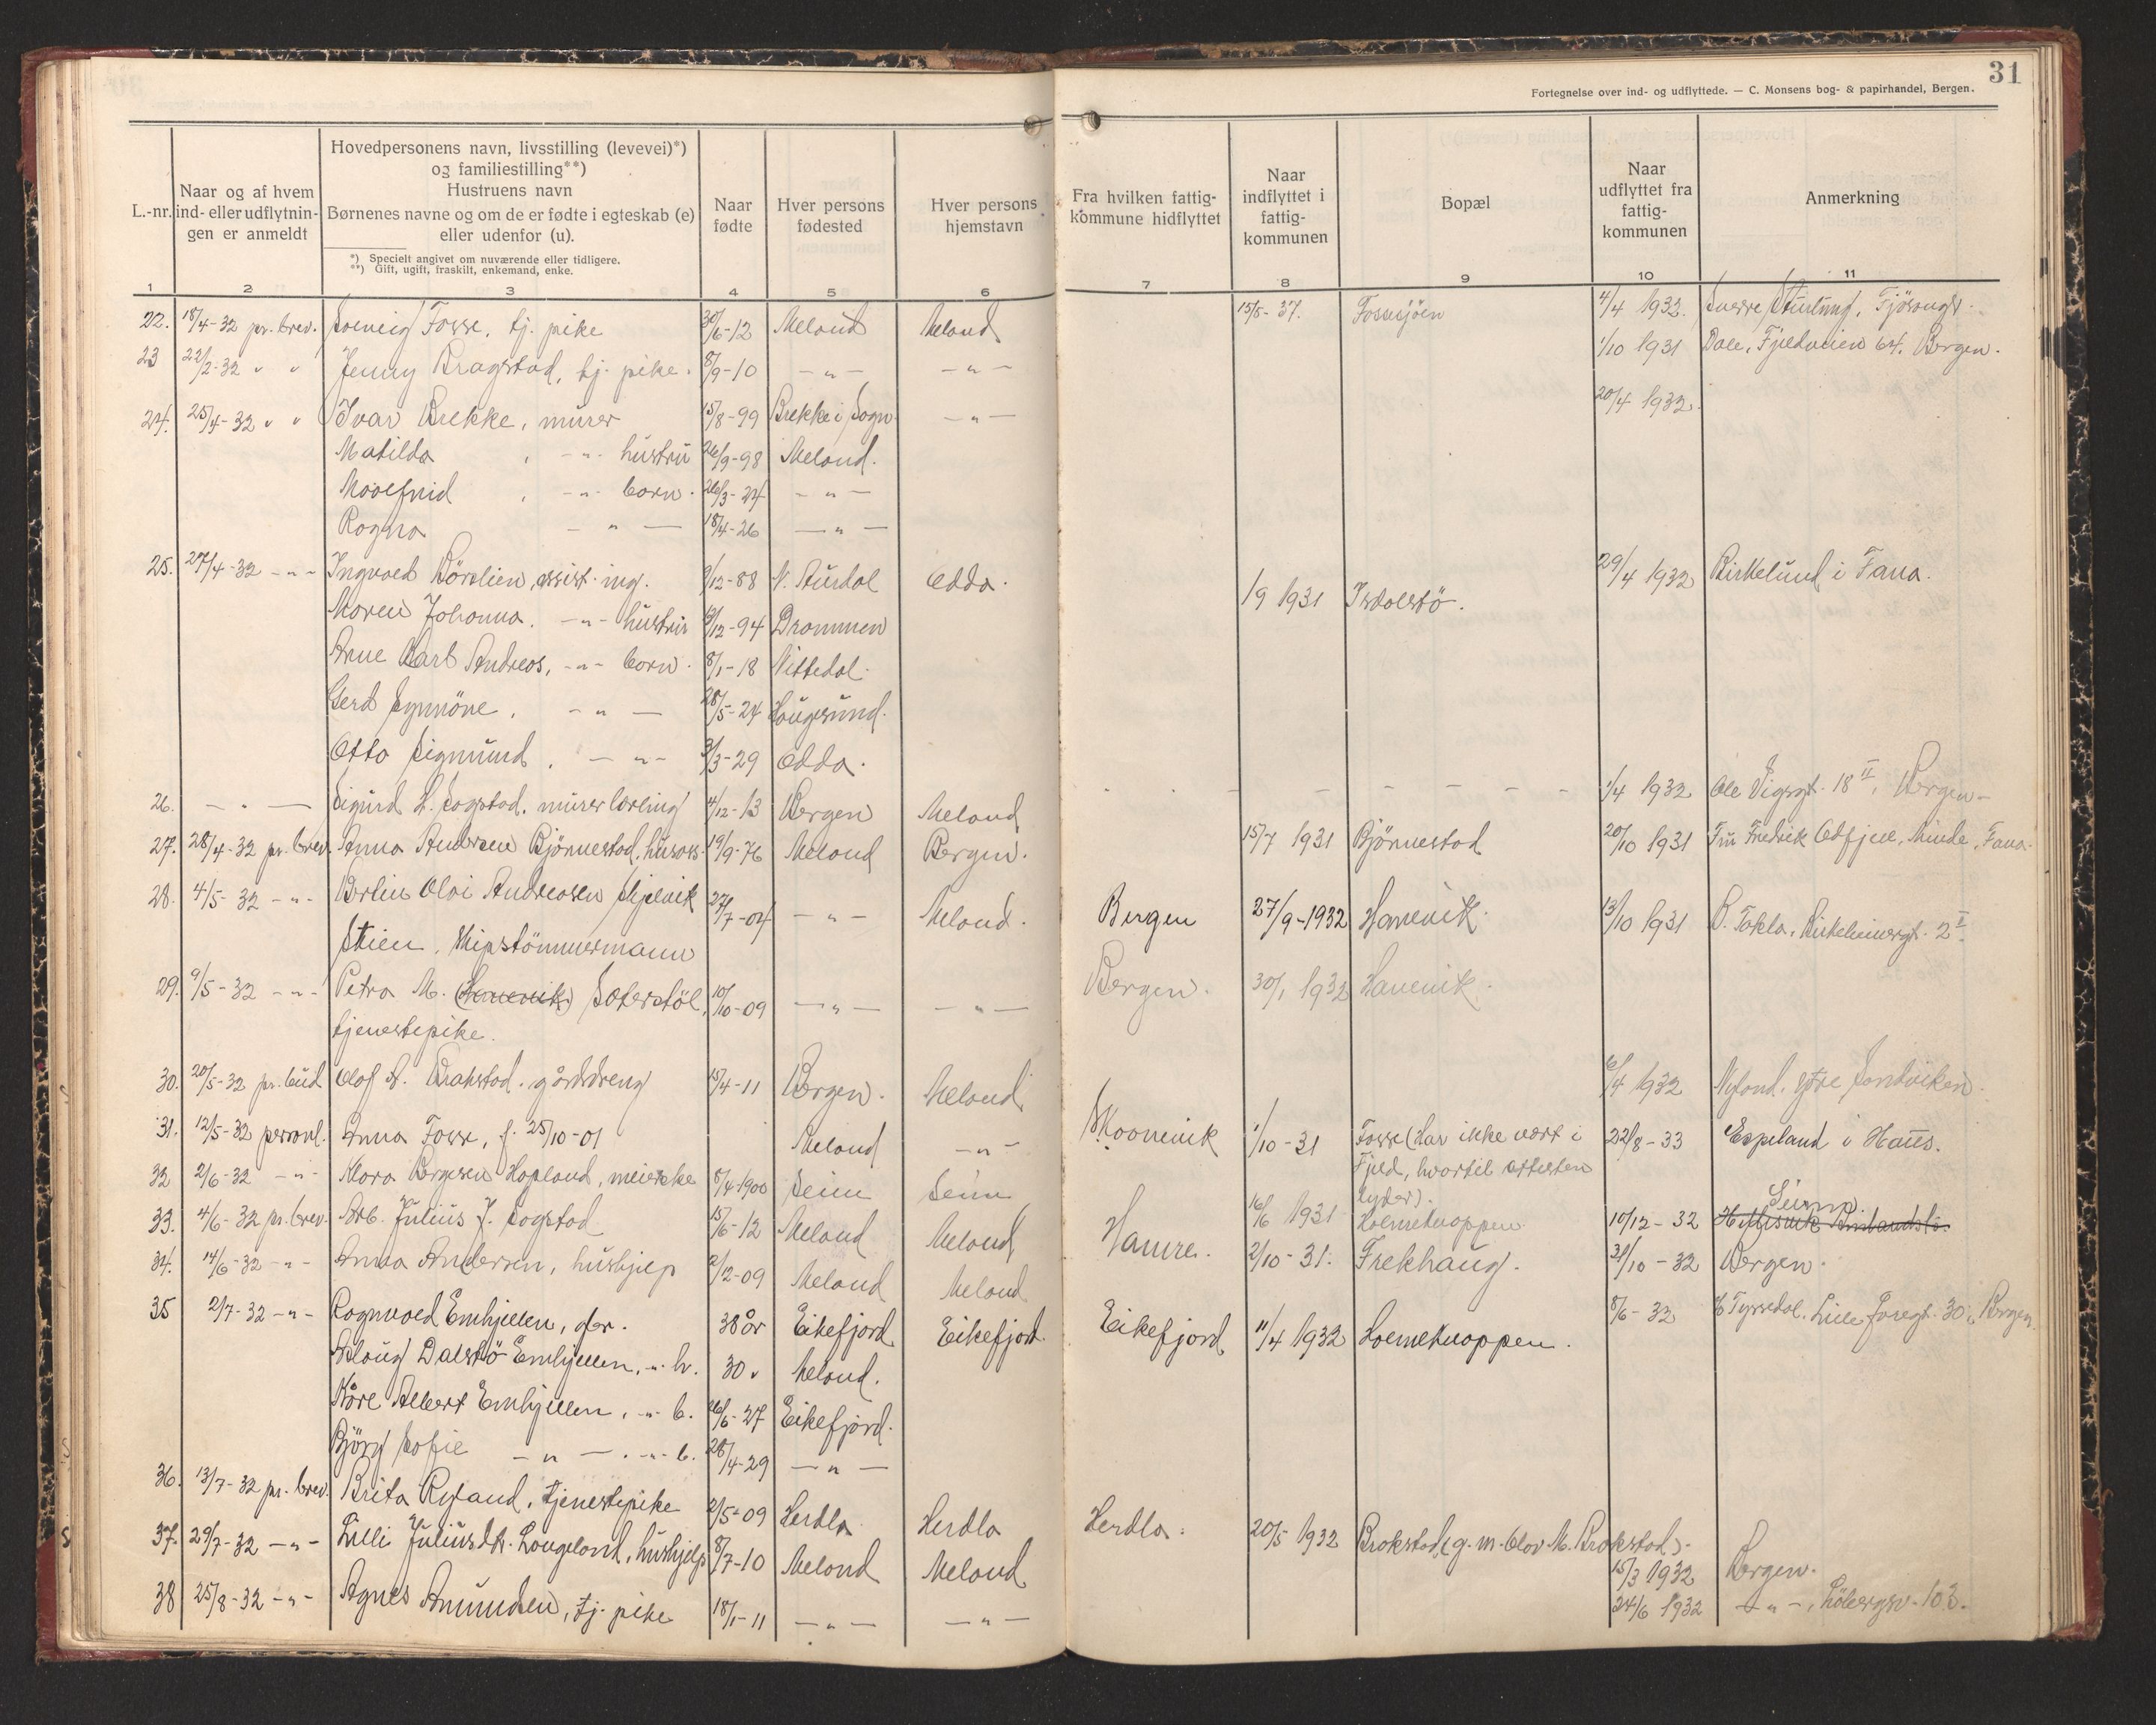 31
Fortegnelse over ind- og udflyttede. — C. Monsens bog- & papirhandel, Bergen.
L.-nr.
Naar og af hvem
ind- eller udflytnin-
gen er anmeldt
Hovedpersonens navn, livsstilling (levevei)*)
og familiestilling**)
Hustruens navn
Børnenes navne og om de er fødte i egteskab (e)
eller udenfor (u).
*) Specielt angivet om nuværende eller tidligere.
**) Gift, ugift, fraskilt, enkemand, enke.
Naar
fødte
Hver persons
fødested
Hver persons
hjemstavn
Fra hvilken fattig-
kommune hidflyttet
Naar
indflyttet i
fattig-
kommunen
Bopæl
Naar
udflyttet fra
fattig-
kommunen
Anmerkning
1 2 3 4 5 6 7 8 9 10 11
22. 18/4-32 pr. brev. Solveig Fosse, tj. pike 30/6-12 Meland Meland 15/5-37. Fossesjöen 4/4 1932. Sverre Fjösanger
23 22/2-32 " " Jenny Bragstad, tj. pike. 8/9-10 -"- -"- 1/10 1931 Dale, Fjeldveien 64, Bergen.
24. 25/4-32 " " Ivar Brekke, murer 15/8-99 Brekke i Sogn -"- 20/4 1932.
Matilda, -"- hustru 26/9-98 Meland.
-"- barn. 26/3-24 -"-
Ragna -"- 18/4-26 -"-
25. 27/4-32 -"- Ingvald assist. ing. 9/12-88 N. Aurdal Odda. 1/9 1931 Isdalstö. 29/4 1932 Birkelund i Fana.
Maren Johanna. -"- hustru 13/12-94 Drammen
Arne Carl Andreas, -"- barn. 8/1-18 Nittedal.
Gerd Synnöve. -"- 28/5-24 Haugesund.
Otto Sigmund. -"- 3/3-29 Odda.
26. -"- Sigurd H. Sagstad. murerlærling 4/12-13 Bergen Meland - - - - - 1/4 1932 Ole Vigsgt. 18 II, Bergen-
27. 28/4-32 pr. brev. Anna Andersen Björnestad, husass. 19/9-76 Meland Bergen. 15/7 1931 Björnestad 20/10 1931 Fru Fredrik Odfjell, Minde, Fana.
28. 4/5-32 -"- Berlin Olai Andreasen Skjelvik 27/7-04 -"- Meland. Bergen 27/9-1932 Hanevik. 13/10 1931 2 II.
Stien, Skipstömmermann
29. 9/5-32 -"- Petra M. (Hanevik) Sæterstöl, 10/10-09 -"- -"- Bergen. 30/1 1932 Hanevik.
tjenestepike.
30. 20/5-32 pr. bud Olaf A. Brakstad. gårdsdreng 15/4-11 Bergen. Meland. 6/4 1932 Nyland. Ytre Sandviken.
31. 12/5-32 personl. Anna Fosse, f. 25/10-01 Meland -"- Skaanevik 1/10-31 Fosse (Har ikke vært i 22/8-33 Espeland i Haus.
Fjeld, hvortil attesten
lyder).
32 2/6-32 -"- Klara Børgesen Hopland, meierske 8/4-1900 Seim Seim 16/6 1931 Holmeknappen. 10/12-32 Seim.
33. 4/6-32 pr. brev. Arb. Julius J. Sagstad 15/6-12 Meland Meland Hamre. 2/10-31. Frekhaug. 31/10-32 Bergen.
34. 14/6-32 -"- Anna Andersen, hushjelp 2/2-09 Meland Meland 8/6-32 % Tyssedal. Lille 30, Bergen
35 2/7-32 -"- Ragnvald Emhjellen, far. 38 år Eikefjord Eikefjord. Eikefjord 11/4 1932 Holmeknappen.
Aslaug Dalstö Emhjellen, -"- h. 30 " Meland.
Kåre Albert Emhjellen, -"- b. 26/6-27 Eikefjord.
Bjørg Sofie -"- . -"- b. 28/4-29 -"-
36. 13/7-32 pr. brev. Brita Ryland, tjenestepike 2/5-09 Herdla Herdla Herdla. 20/5 1932 Brakstad (g. m. Olav M. Brakstad).
37. 29/7-32 -"- Lilli Juliusdtr. Langeland, hushjelp 8/7-10 Meland Meland 15/3 1932 Bergen.
38 25/8-32 -"- Agnes Amundsen, tj. pike 18/1-11 -"- -"- 24/6 1932 -"-, 103.